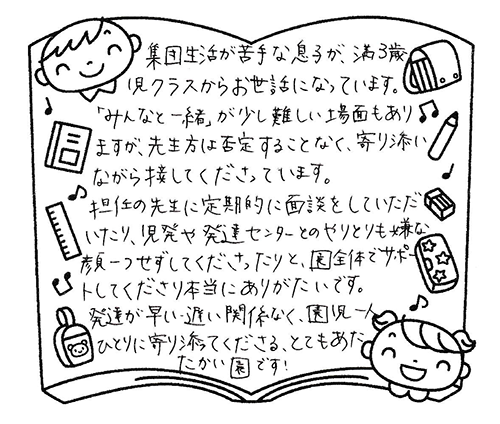 集団生活が苦手な息子が、満3歳
児クラスからお世話になっています。
「みんなと一緒」が少し難しい場面もあり
ますが、先生方は否定することなく、寄り添い
ながら接してくださっています。
担任の先生に定期的に面談をしていただ
いたり、児発や発達センターとのやりとりも嫌な
顔一つせずしてくださったりと、園全体でサポー
トしてくださり本当にありがたいです。
発達が早い遅い関係なく、園児一人
ひとりに寄り添ってくださる、とてもあた
たかい園です!